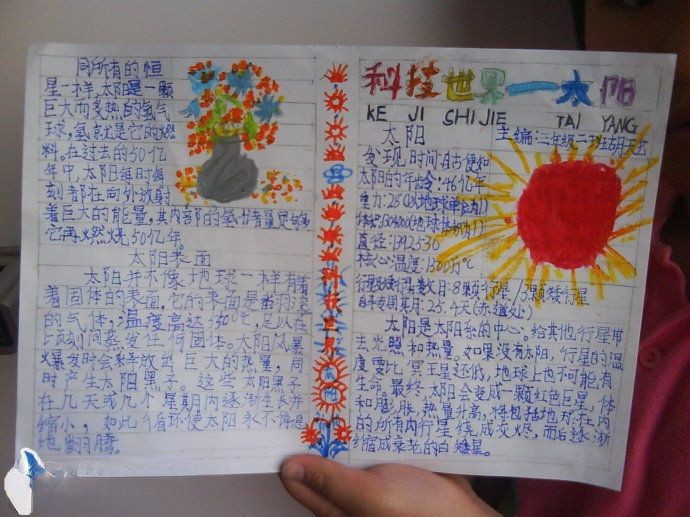 同所有的恒
星一样,太阳是一颗
巨大而多热的氢气
球,氢就是它的燃
料。在过去的50亿
年中,太阳每时每
刻都在向外放射
着巨大的能量,其内部的氢
它再燃烧50亿年。
太阳表面
太阳并不像地球一样有着
着固体的表面,它的表面是
的气体,温度高达5700℃,足以在
瞬间蒸发任何固体。太阳风暴
爆发时会释放出巨大的热量,同
时产生太阳黑子。这些太阳黑子
在几天或几个星期内逐渐生大并
缩小,如此循环使太阳永不停息
地翻腾。
科技世界一太阳
KE JI SHI JIE TAI YANG
太阳 主编:三年级二班
发现时间:自古便知
太阳的年令:46亿年
体积:1304000(地球体积为1)
直径:1392530
核心温度:1500万℃
8颗行星/3颗矮行星
自转周期:25.4天(赤道处)
太阳是太阳系的中心。给其他行星带
去光照和热量。如果没有太阳,行星的温
度要比冥王星还低,地球上也不可能有
生命。最终,太阳会变成一颗红色巨星,体
和膨胀,热量升高,将包括地球在内
的所有内行星烧成灰烬,而后逐渐
缩成衰老的白矮星。